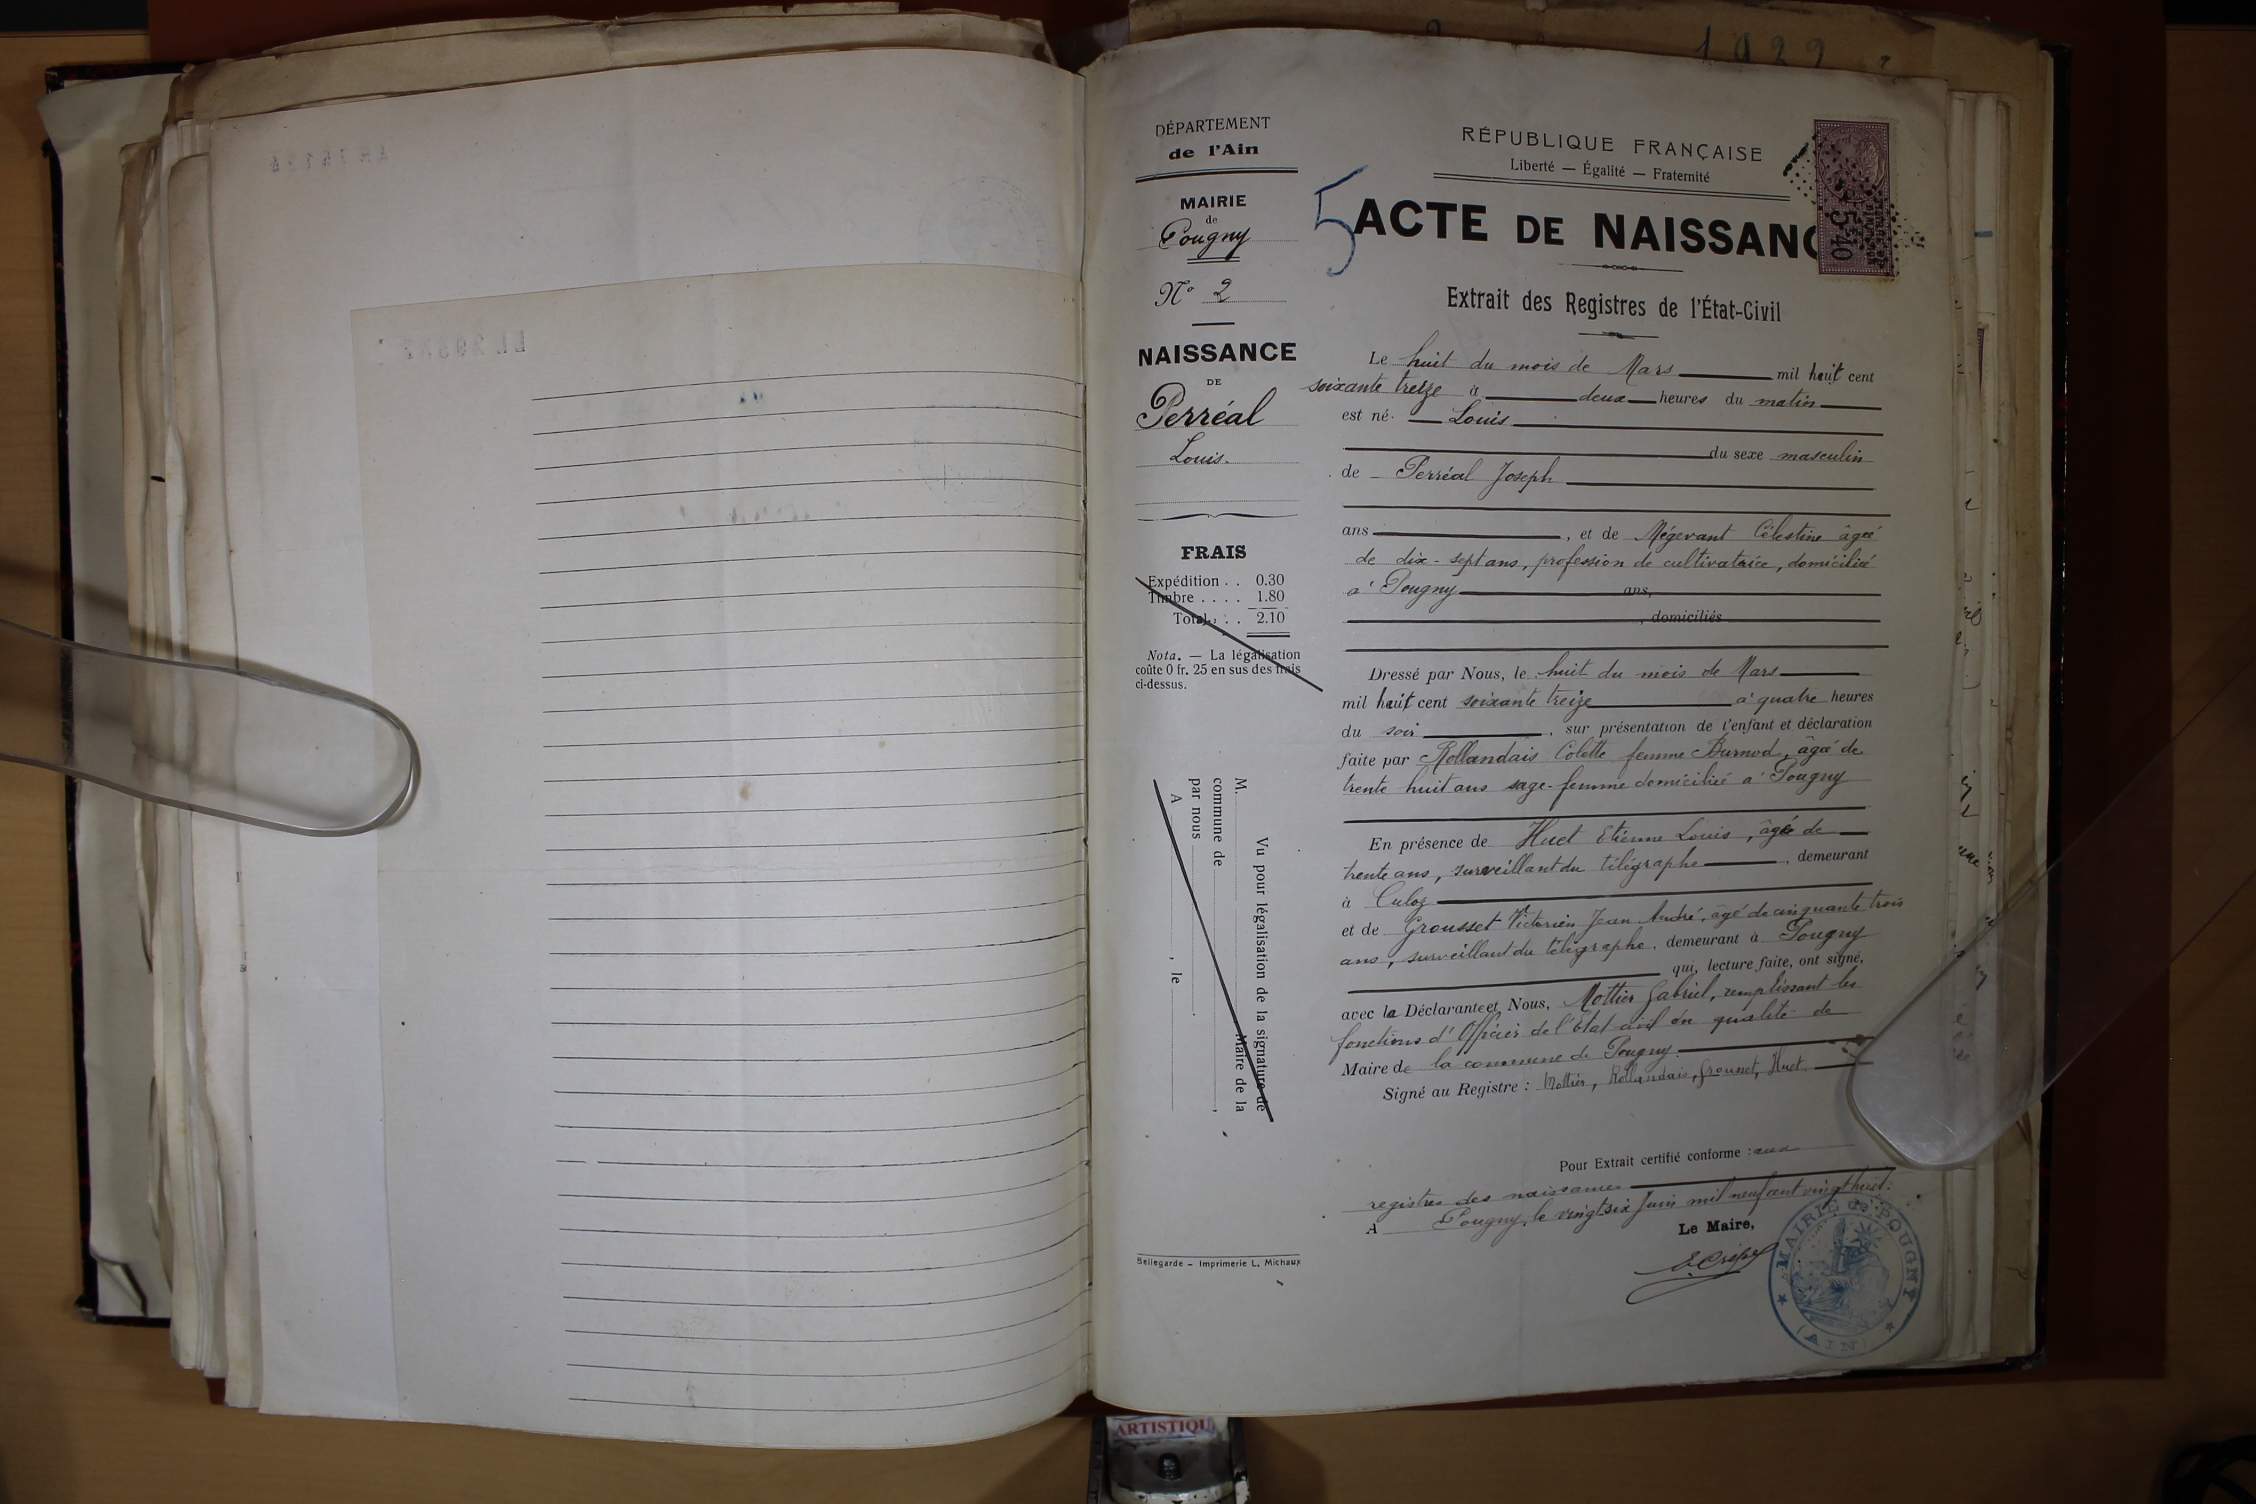 1922
DÉPARTEMENT
de l'Ain
MAIRIE
de
Pougny
N° 2
NAISSANCE
DE
Perréal
Louis.
FRAIS
Expédition . . 0.30
Timbre . . . . 1.80
Total . . . 2.10
Nota. — La légalisation
coûte 0 fr. 25 en sus des frais
ci-dessus.
Vu pour légalisation de la signature de
M. Maire de la
commune de ,
par nous .
A , le
Bellegarde – Imprimerie L. Michaux
RÉPUBLIQUE FRANÇAISE
Liberté — Égalité — Fraternité
5
ACTE DE NAISSANC
5F40
Extrait des Registres de l'État-Civil
Le huit du mois de Mars mil huit cent
soixante treize à deux heures du matin
est né Louis
du sexe masculin
de Perréal Joseph
ans , et de Mégevant Célestine âgée
de dix-sept ans, profession de cultivatrice, domiciliée
à Pougny ans,
, domiciliés
Dressé par Nous, le huit du mois de Mars
mil huit cent soixante treize à quatre heures
du soir , sur présentation de l'enfant et déclaration
faite par Rollandais Colette femme Burnod, âgée de
trente huit ans sage-femme domiciliée à Pougny
En présence de Huet Etienne Louis, âgé de
trente ans, surveillant du télégraphe , demeurant
à Culoz
et de Grousset Victorien Jean André, âgé de cinquante trois
ans, surveillant du télégraphe, demeurant à Pougny
qui, lecture faite, ont signé,
avec la Déclarante et Nous, Mottier Gabriel, remplissant les
fonctions d'Officier de l'État civil en qualité de
Maire de la commune de Pougny.
Signé au Registre : Mottier, Rollandais, Grousset, Huet
Pour Extrait certifié conforme : aux
registres des naissances
A Pougny, le vingt six Juin mil neuf cent vingt huit.
Le Maire,
MAIRIE de POUGNY
(AIN)
ARTISTIQU